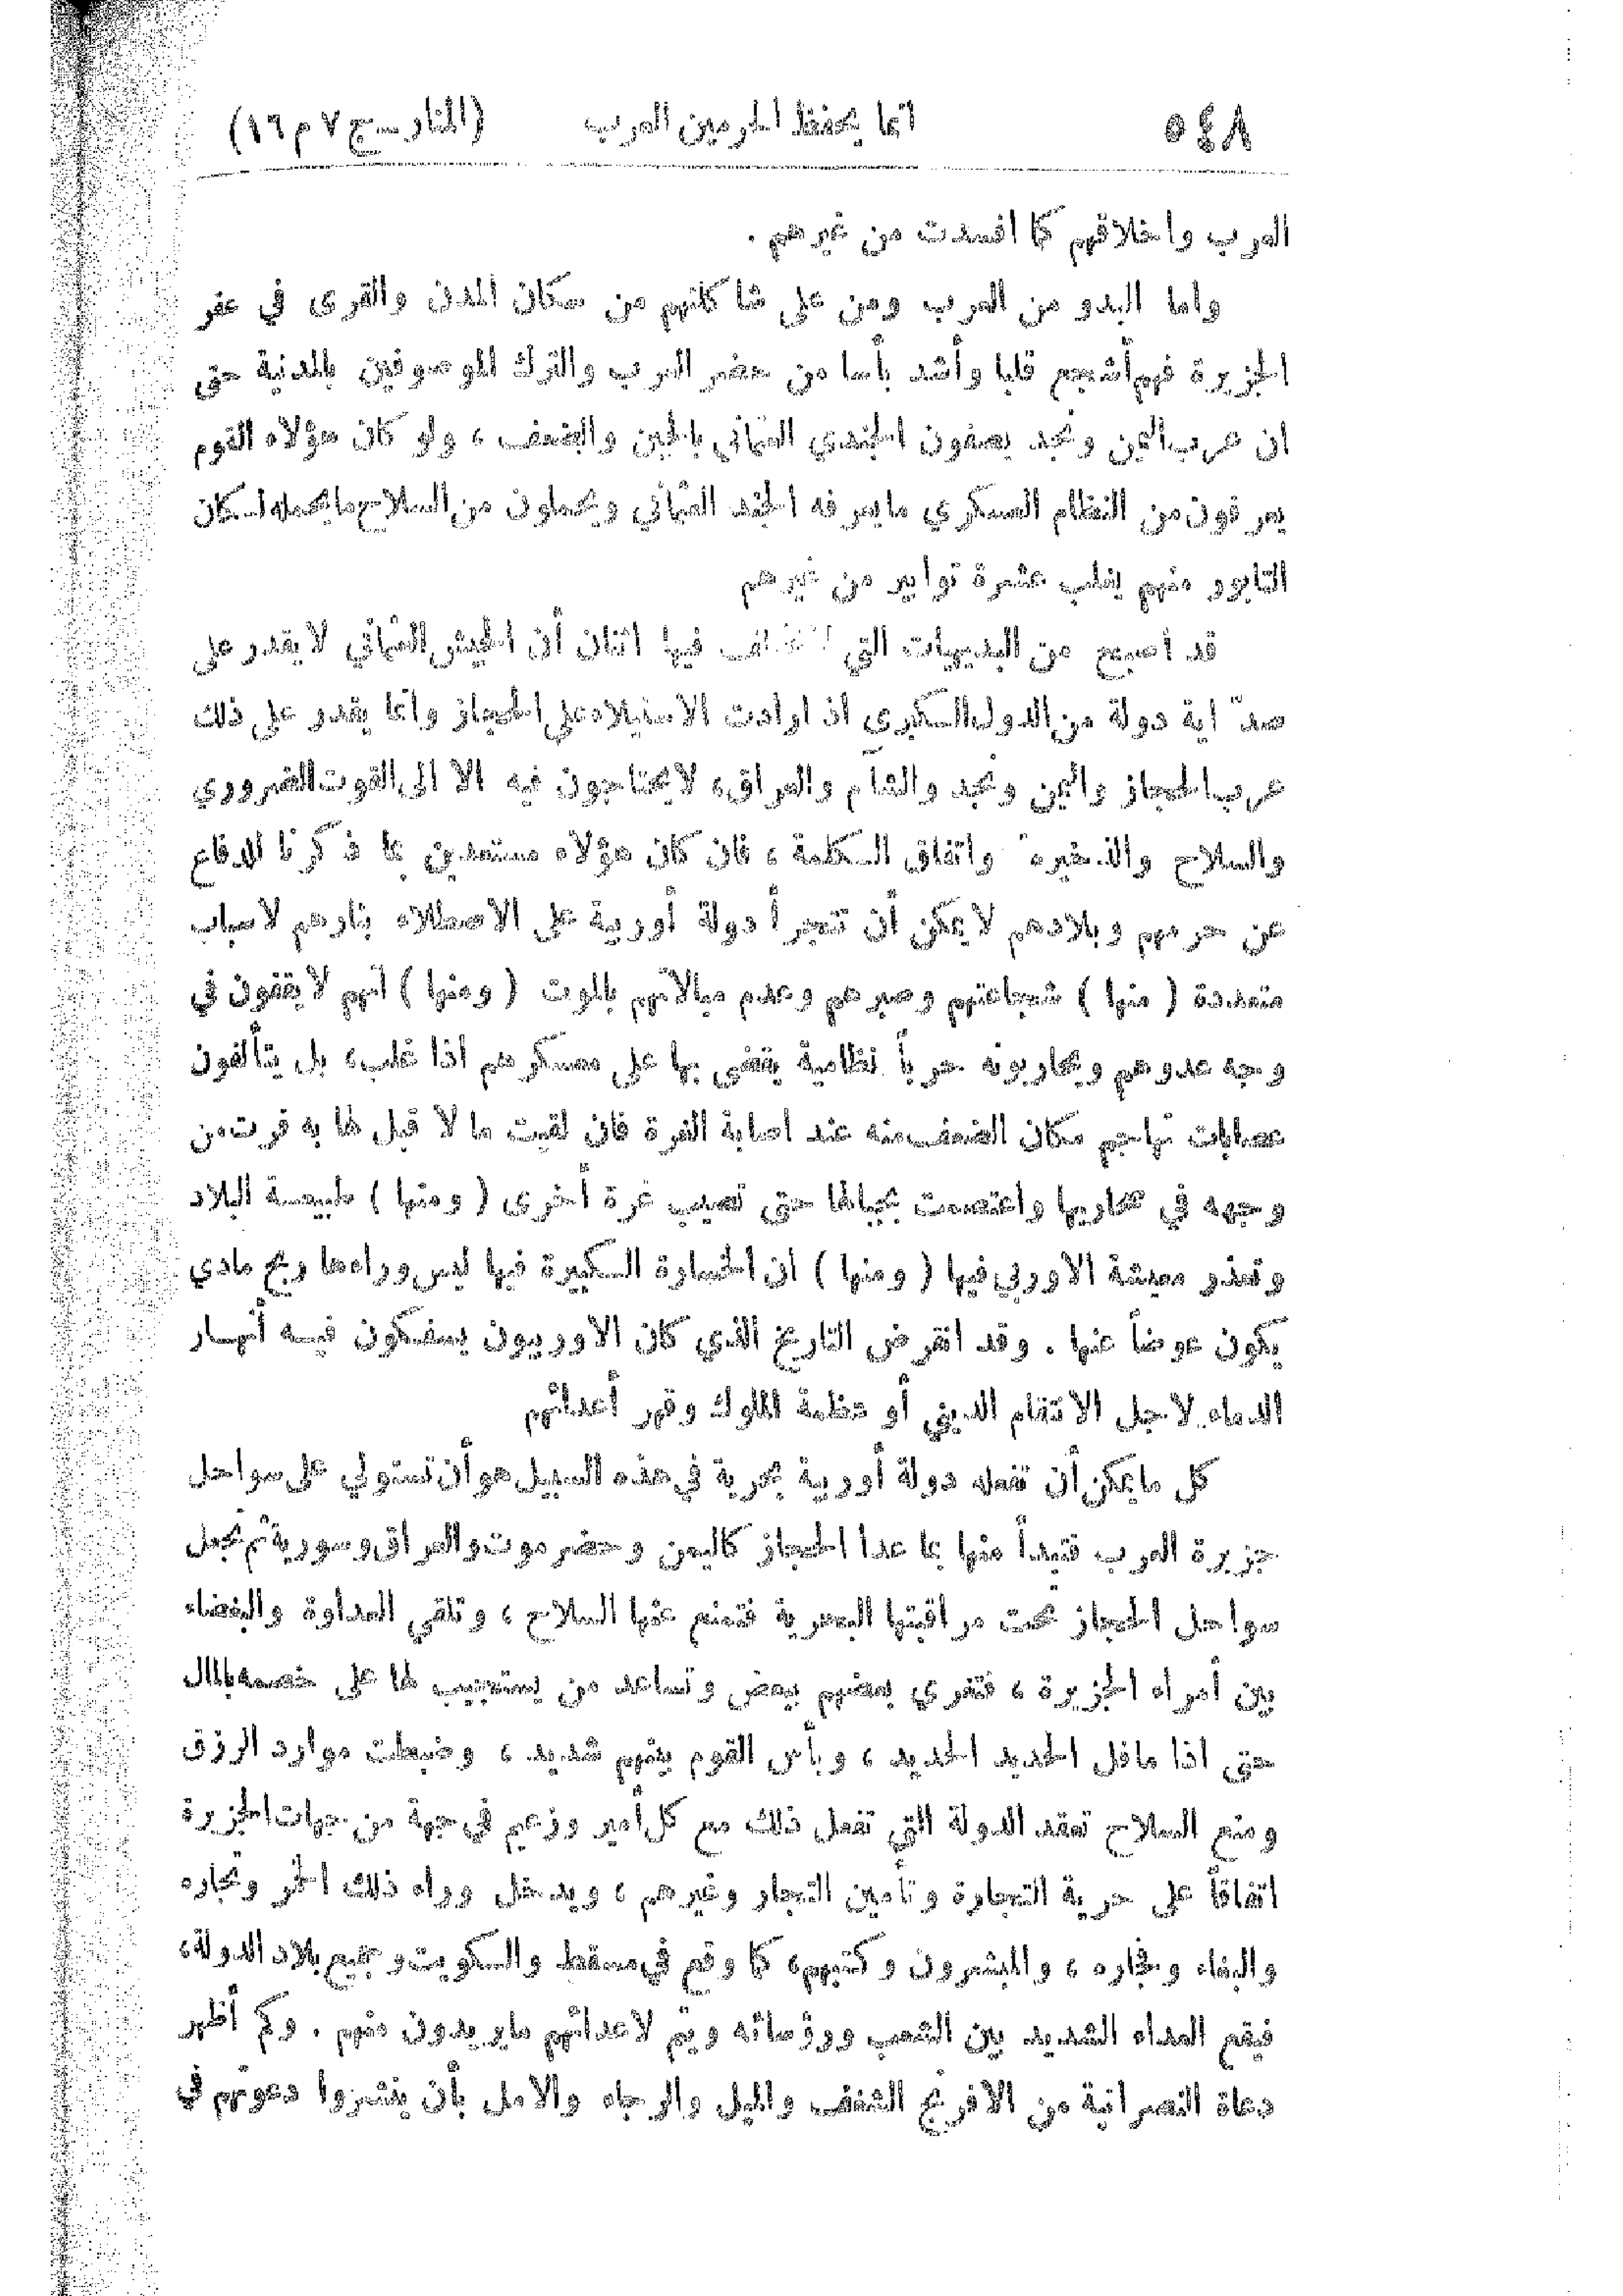 ٥٤٨ انما يحفظ الحرمين العرب (المنار ـ ج ٧ م ١٦)
العرب واخلاقهم كما افسدت من غيرهم .
واما البدو من العرب ومن على شاكلتهم من سكان المدن والقرى في عقر
الجزيرة فهم أشجع قلبا وأشد بأسا من حضر العرب والترك الموصوفين بالمدنية حتى
ان عرب اليمن ونجد يصفون الجندي العثماني بالجبن والضعف ، ولو كان هؤلاء القوم
يعرفون من النظام العسكري ما يعرفه الجند العثماني ويحملون من السلاح ما يحمله لكان
التابور منهم يغلب عشرة توابير من غيرهم
قد أصبح من البديهيات التي فيها اثنان أن الجيش العثماني لا يقدر على
صدّ اية دولة من الدول الكبرى اذ ارادت الاستيلاء على الحجاز وانما يقدر على ذلك
عرب الحجاز واليمن ونجد والشام والعراق، لا يحتاجون فيه الا الى القوت الضروري
والسلاح والذخيرة واتفاق الكلمة ، فان كان هؤلاء مستعدين بما ذكرنا للدفاع
عن حرمهم وبلادهم لا يمكن أن تتجرأ دولة أوربية على الاصطلاء بنارهم لاسباب
متعددة ( منها ) شجاعتهم وصبرهم وعدم مبالاتهم بالموت ( ومنها ) انهم لا يقفون في
وجه عدوهم ويحاربونه حرباً نظامية يقضى بها على معسكرهم اذا غلب، بل يتألفون
عصابات تهاجم مكان الضعف منه عند اصابة الغرة فان لقيت ما لا قبل لها به فرت من
وجهه في صحاريها واعتصمت بجبالها حتى تصيب غرة أخرى ( ومنها ) طبيعة البلاد
وتعذر معيشة الاوربي فيها ( ومنها ) ان الخسارة الكبيرة فيها ليس وراءها ربح مادي
يكون عوضاً عنها . وقد انقرض التاريخ الذي كان الاوربيون يسفكون فيه أنهار
الدماء لاجل الانتقام الديني أو عظمة الملوك وقهر أعدائهم
كل ما يمكن أن تفعله دولة أوربية بحرية في هذه السبيل هو أن تستولي على سواحل
جزيرة العرب فتبدأ منها بما عدا الحجاز كاليمن وحضرموت والعراق وسورية ثم تجعل
سواحل الحجاز تحت مراقبتها البحرية فتمنع عنها السلاح ، وتلقي العداوة والبغضاء
بين أمراء الجزيرة ، فتغري بعضهم ببعض وتساعد من يستجيب لها على خصمه بالمال
حتى اذا ما فل الحديد الحديد ، وبأس القوم بينهم شديد ، وضبطت موارد الرزق
ومنع السلاح تعقد الدولة التي تفعل ذلك مع كل أمير وزعيم في جهة من جهات الجزيرة
اتفاقاً على حرية التجارة وتأمين التجار وغيرهم ، ويدخل وراء ذلك الخمر وتجاره
والبغاء وتجاره ، والمبشرون وكتبهم، كما وقع في مسقط والكويت وجميع بلاد الدولة،
فيقع العداء الشديد بين الشعب ورؤسائه ويتم لاعدائهم ما يريدون منهم . وكم أظهر
دعاة النصرانية من الافرنج الشغف والميل والرجاء والامل بأن ينشروا دعوتهم في